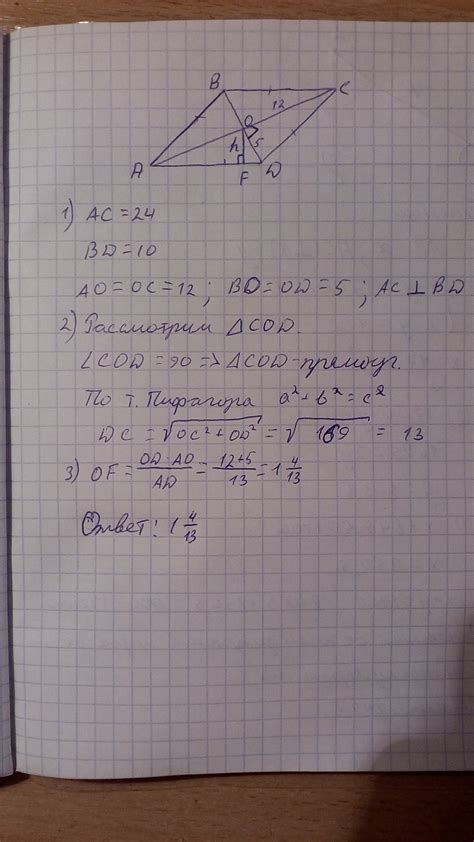 B C
12
O
h 5
A F D
1) AC = 24
BD = 10
AO = OC = 12 ; BO = OD = 5 ; AC ⊥ BD
2) Рассмотрим △COD.
∠COD = 90 => △COD - прямоуг.
По т. Пифагора a² + b² = c²
DC = √OC² + OD² = √169 = 13
3) OF = OD · AO / AD = 12 + 5 / 13 = 1 4/13
Ответ: 1 4/13